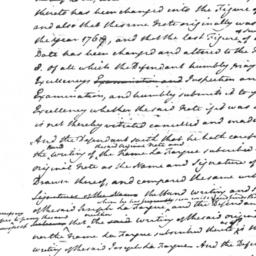 thereto has been changed into the Figure of
and also that the same Note originally was
the year 1768, and that the last Figure of
Date has been changed and altered to the
8. of all which the Defendant humbly prays
Excellencys Examination and Inspection an
Examination, and humbly submits it to y
Excellency whether the said Note is
is not thereby vitiated cancelled and made
And the Defendant saith that he hath careful
the writing of the Name La Fargue subscribed
original Note as the Name and Signature of
Drawer thereof, and compared the same wi
Signature of the Name the Hand writing and
of the said Joseph La Fargue, and the Defendan
that neither the said writing of the said origin
nor the Name La Fargue subscribed thereto, is
writing of the said Joseph La Fargue. And the Defen